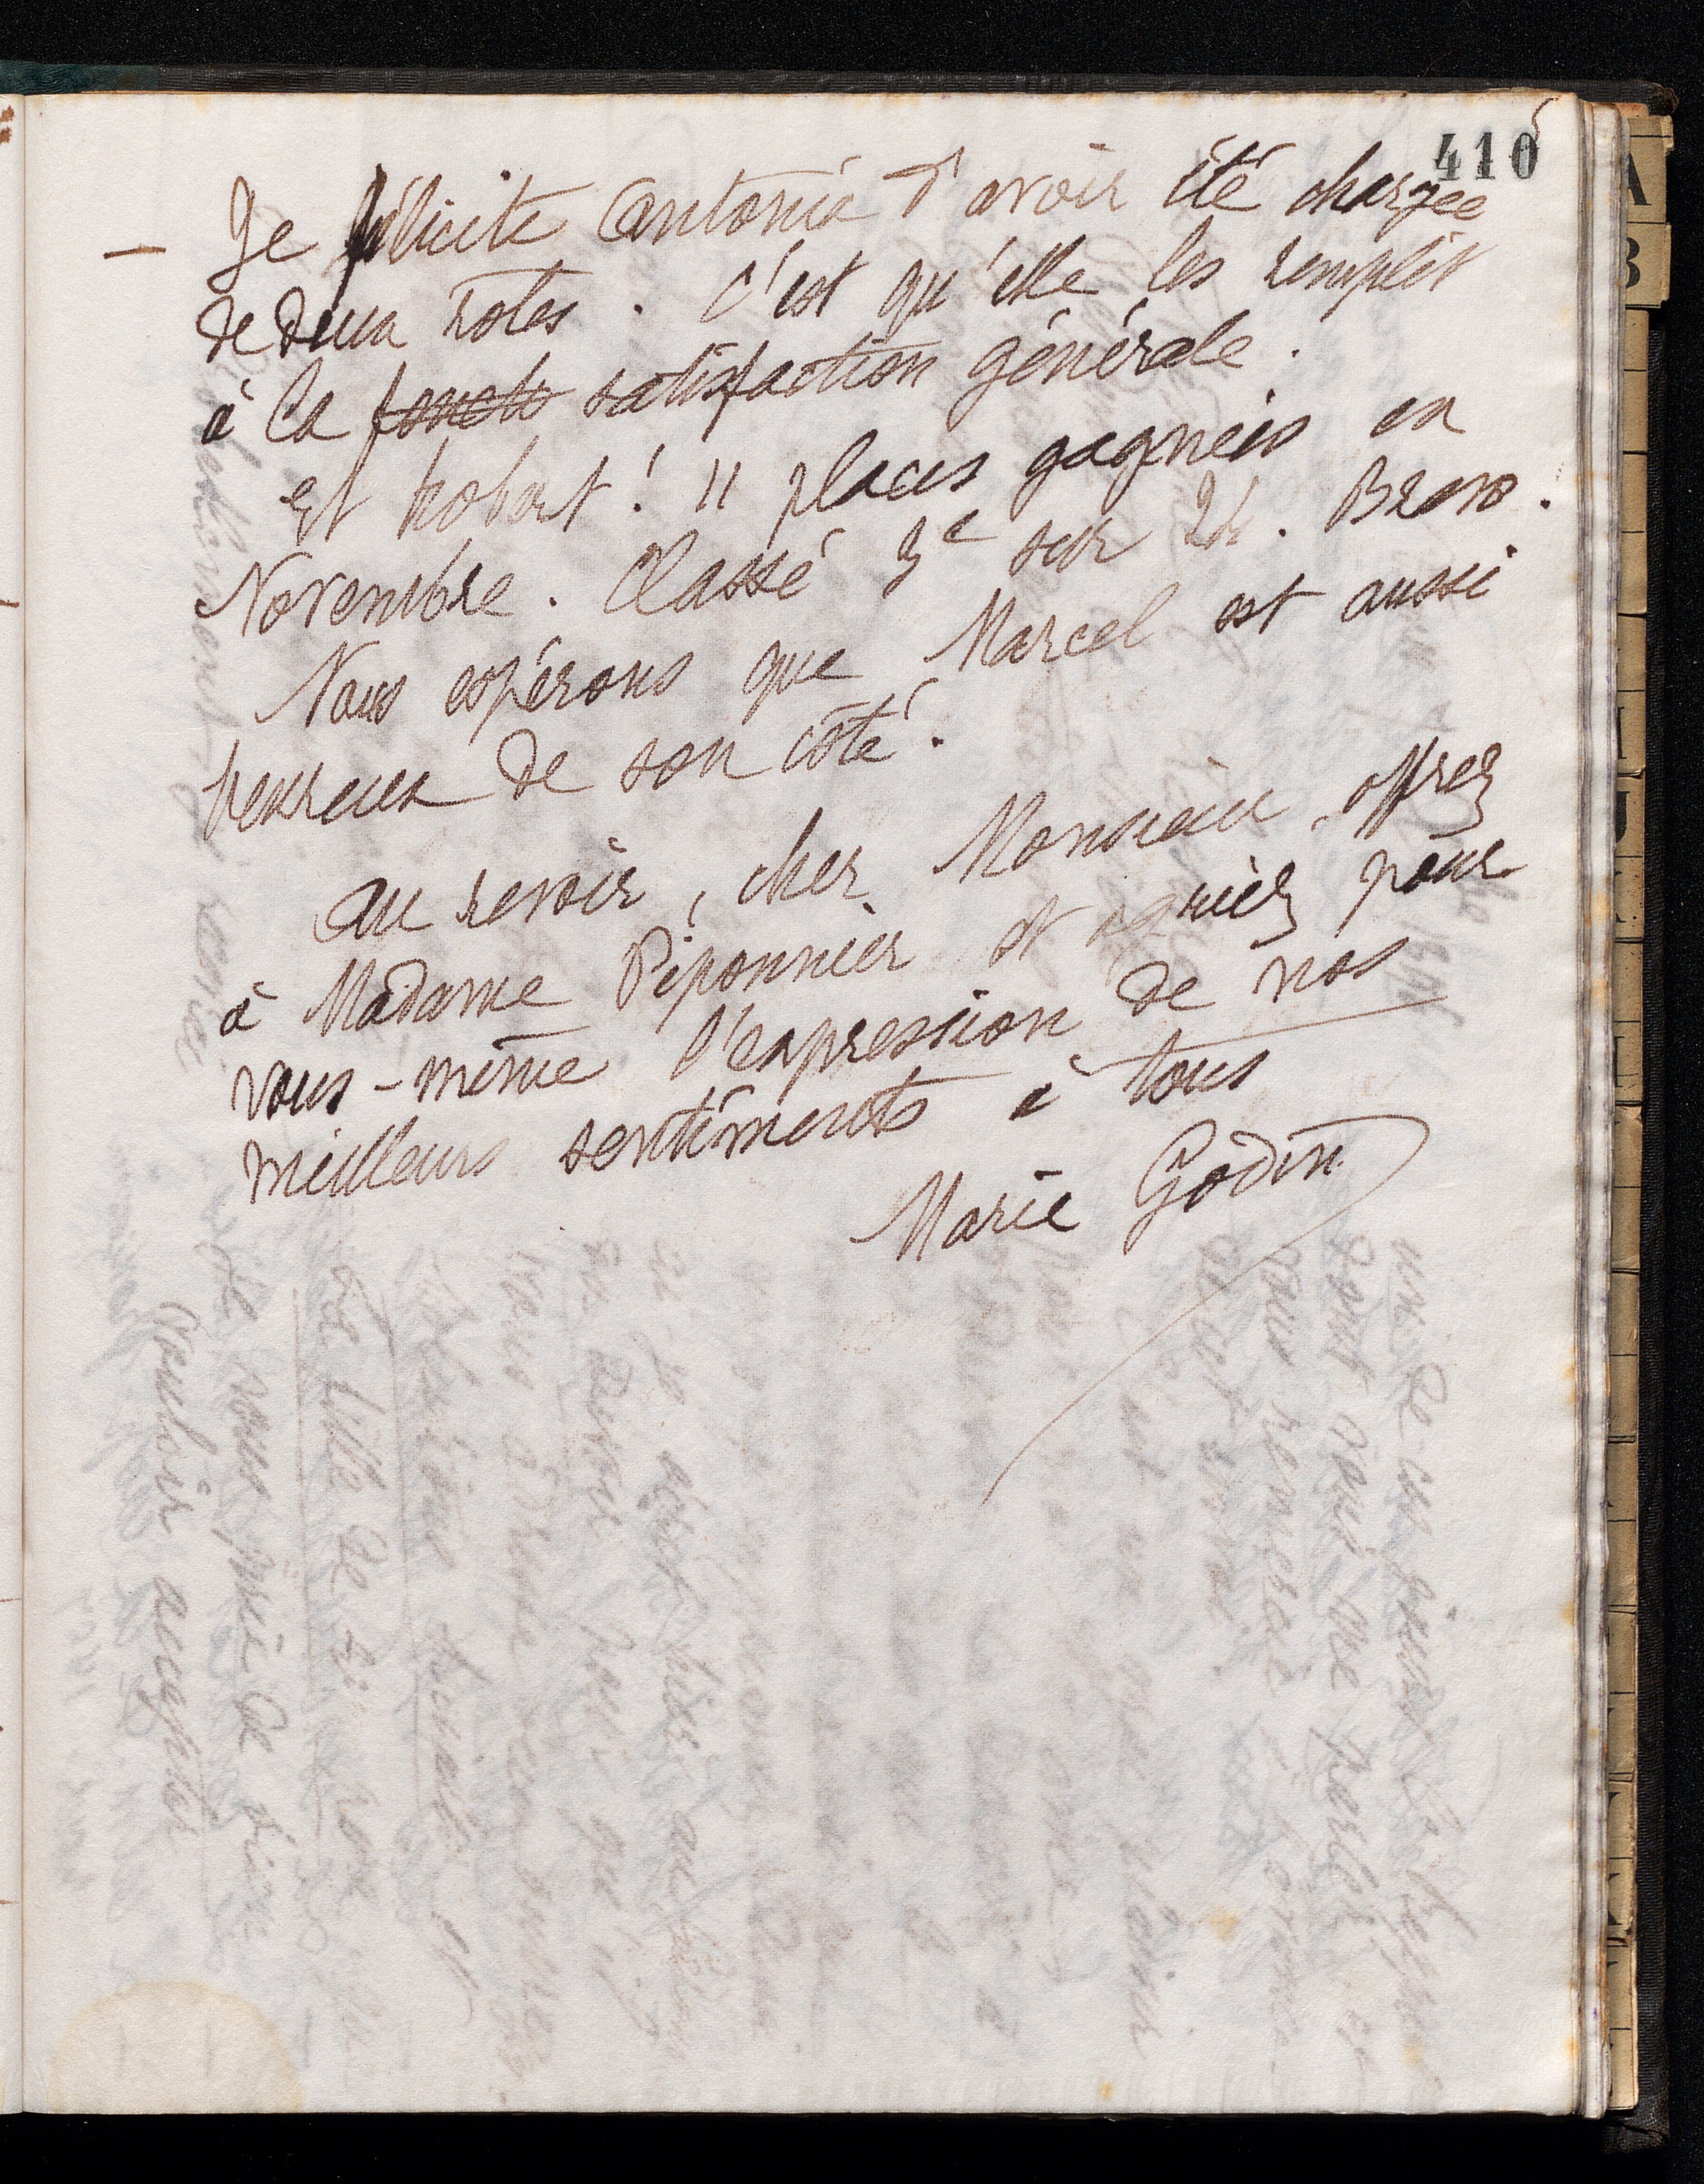 410
— Je félicite Antonia d'avoir été chargée
de deux rôles. C'est qu'elle les remplit
à la foncti satisfaction générale.
Et Robert! 11 places gagnées en
Novembre. Classé 3e sur 24. Bravo.
Nous espérons que Marcel est aussi
heureux de son côté.
Au revoir, cher Monsieur, offrez
à Madame Piponnier et agréez pour
vous-même l'expression de nos
meilleurs sentiments à tous
Marie Godin